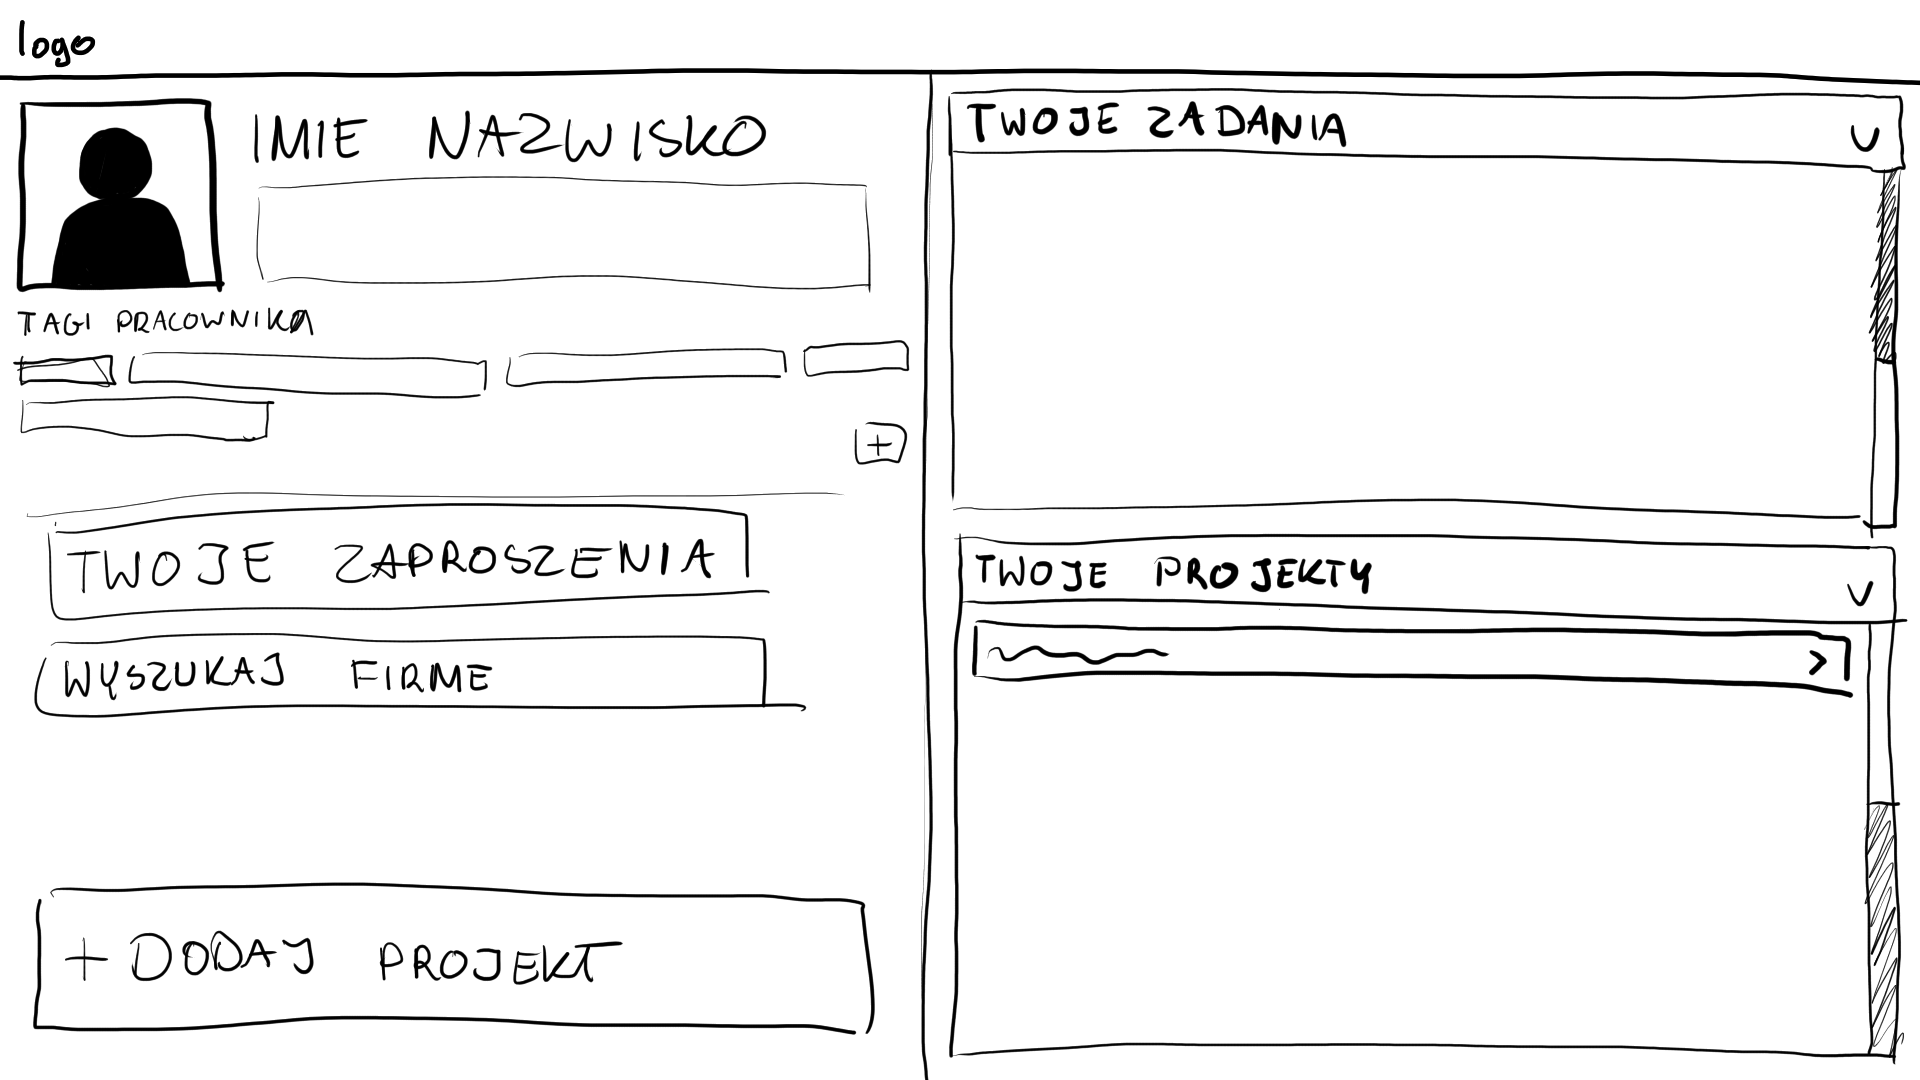 logo
IMIE NAZWISKO
TAGI PRACOWNIKA
+
TWOJE ZAPROSZENIA
WYSZUKAJ FIRME
+ DODAJ PROJEKT
TWOJE ZADANIA
TWOJE PROJEKTY